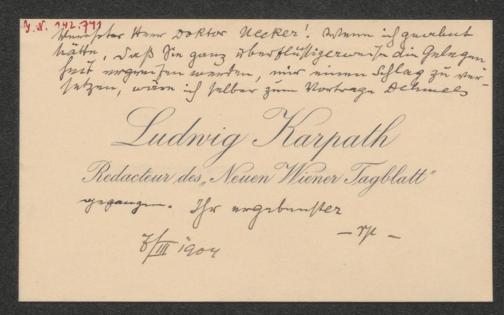 J. N. 142.741
Verehrter Herr Doktor Necker! Wenn ich geahnt
hätte, daß Sie ganz überflüssigerweise die Gelegen-
heit ergreifen werden, mir einen Schlag zu ver-
setzen, wäre ich selber zum Vortrage Dehmels
Ludwig Karpath
Redacteur des „Neuen Wiener Tagblatt“
gegangen. Ihr ergebenster
7/III 1904